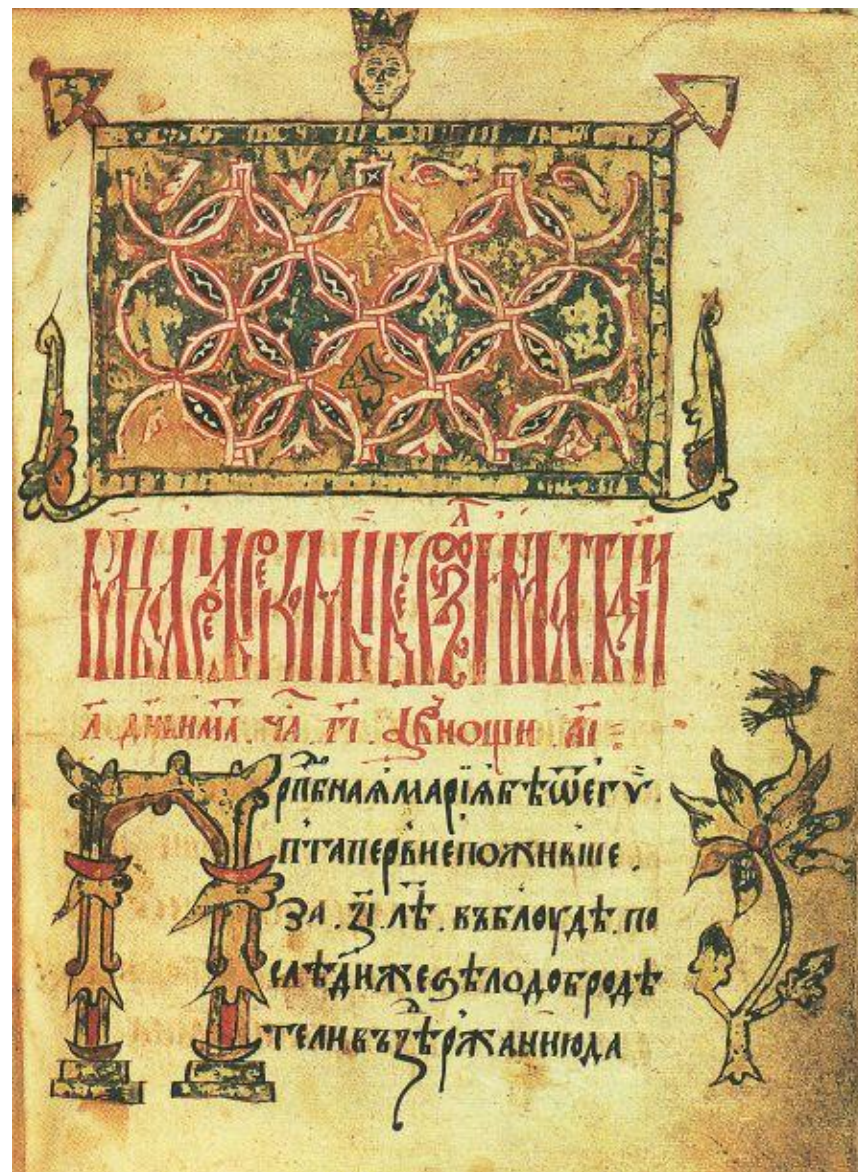 л҃ дн҃ь има. ча. г҃і. а в нощи а҃і
Прпбнаѧ марїѧ бѣ ѿ егѵ
пта первие поживше.
за .з҃і. лѣ. въ блоудѣ. по
слѣди же ѕѣло добродѣ
тели въздержанию да